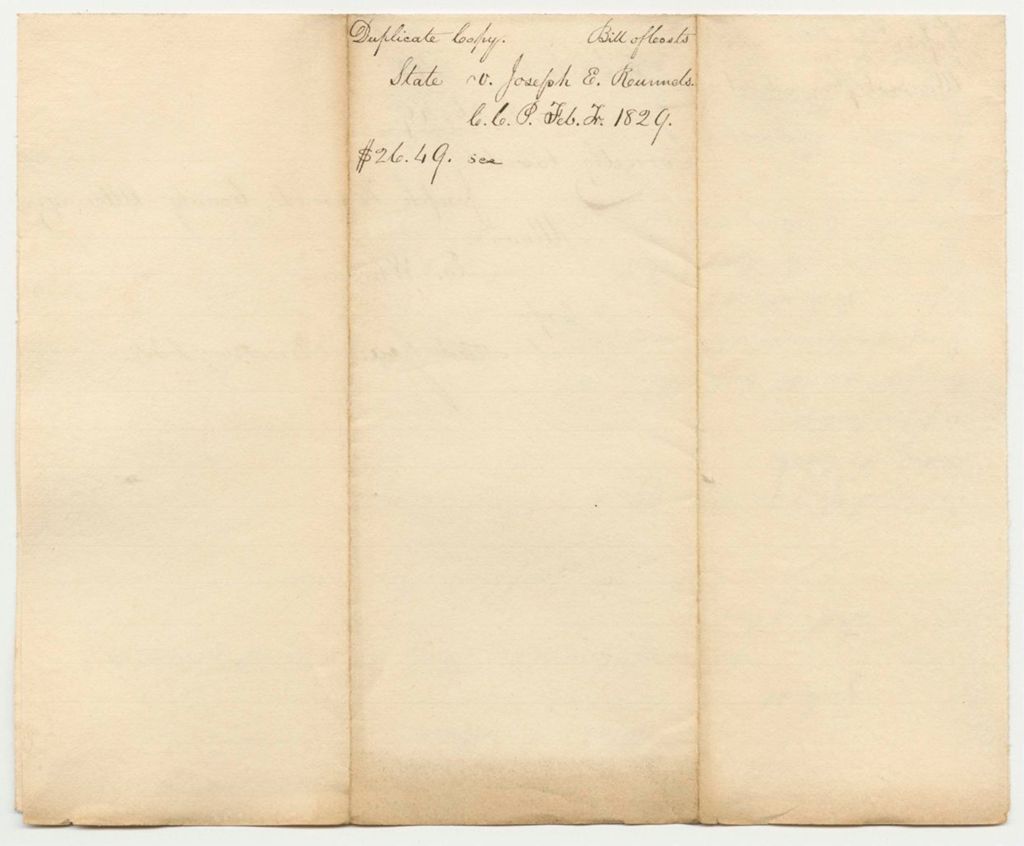 Duplicate Copy. Bill of Costs
State v. Joseph E. Reunnels.
C. C. P. Feb. Tr. 1829.
$26.49.